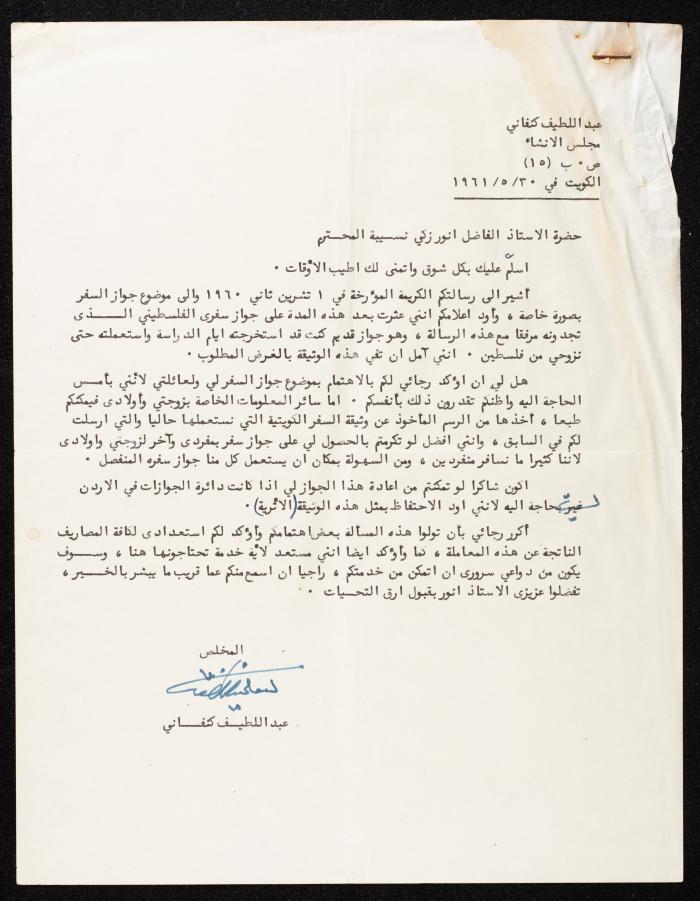 عبد اللطيف كنفاني
مجلس الانشاء
ص٠ب (١٥)
الكويت في ١٩٦١/٥/٣٠
حضرة الاستاذ الفاضل انور زكي نسيبة المحترم
اسلّم عليك بكل شوق واتمنى لك اطيب الأوقات ٠
أشير الى رسالتكم الكريمة المؤرخة في ١ تشرين ثاني ١٩٦٠ والى موضوع جواز السفر
بصورة خاصة ، وأود اعلامكم انني عثرت بعد هذه المدة على جواز سفرى الفلسطيني الــــذى
تجدونه مرفقا مع هذه الرسالة ، وهو جواز قديم كنت قد استخرجته ايام الدراسة واستعملته حتى
نزوحي من فلسطين ٠ انني آمل ان تفي هذه الوثيقة بالغرض المطلوب ٠
هل لي ان اؤكد رجائي لكم بالاهتمام بموضوع جواز السفر لي ولعائلتي لأنني بأمس
الحاجة اليه واظنكم تقدرون ذلك بأنفسكم ٠ اما سائر المعلومات الخاصة بزوجتي وأولادى فيمكنكم
طبعا ، أخذها من الرسم المأخوذ عن وثيقة السفر الكويتية التي نستعملها حاليا والتي ارسلت
لكم في السابق ، وانني افضل لو تكرمتم بالحصول لي على جواز سفر بمفردى وآخر لزوجتي واولادى
لاننا كثيرا ما نسافر منفردين ، ومن السهولة بمكان ان يستعمل كل منا جواز سفره المنفصل ٠
اكون شاكرا لو تمكنتم من اعادة هذا الجواز لي اذا كانت دائرة الجوازات في الاردن
ليست بحاجة اليه لانني اود الاحتفاظ بمثل هذه الوثيقة (الأثرية) ٠
أكرر رجائي بأن تولوا هذه المسألة بعض اهتمامكم وأؤكد لكم استعدادى لكافة المصاريف
الناتجة عن هذه المعاملة ، كما وأؤكد ايضا انني مستعد لأية خدمة تحتاجونها هنا ، وســـوف
يكون من دواعي سرورى ان اتمكن من خدمتكم ، راجيا ان اسمع منكم عما قريب ما يبشر بالخـــير ،
تفضلوا عزيزى الاستاذ انور بقبول ارق التحيات ٠
المخلص
عبد اللطيـــف كنفـــــاني